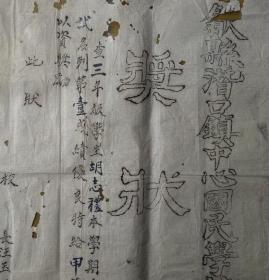 歙縣潛口鎮中心國民學
獎狀
查三年級學生胡志禮本學期
名列第壹成績優良特給甲
以資獎勵
此狀
校長汪玉